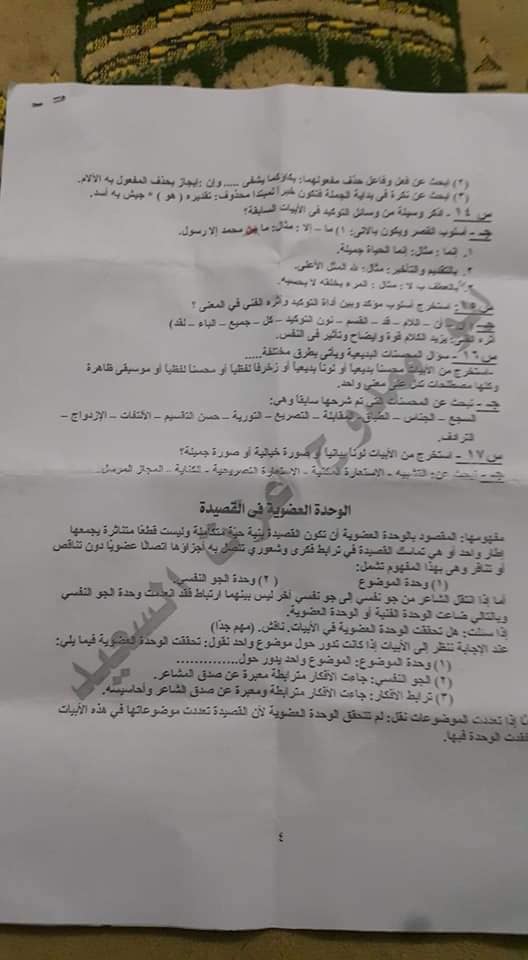 (٢) ابحث عن فعل وفاعل حذف مفعولهما: بكاؤكما يشفى ..... وإن :إيجاز بحذف المفعول به الآلام.
(٣) ابحث عن نكرة فى بداية الجملة فتكون خبراً لمبتدأ محذوف: تقديره ( هو ) " جيش به أسد.
س ١٤ - اذكر وسيلة من وسائل التوكيد فى الأبيات السابقة؟
جـ - أسلوب القصر ويكون بالآتى: ١) ما – إلا : مثال: ما محمد إلا رسول.
١. إنما : مثال: إنما الحياة جميلة.
٢. بالتقديم والتأخير: مثال: لله المثل الأعلى.
٣. بالعطف ب لا : مثال : المرء بخلقه لا بحسبه.
س ١٥ - استخرج أسلوب مؤكد وبين أداة التوكيد وأثره الفني في المعنى ؟
جـ - إن – أن – اللام – قد – القسم – نون التوكيد – كل – جميع – الباء – لقد)
أثره الفنى: يزيد الكلام قوة وإيضاح وتأثير فى النفس.
س ١٦ - سؤال المحسنات البديعية ويأتى بطرق مختلفة....
-استخرج من الأبيات محسناً بديعياً أو لوناً بديعياً أو زخرفاً لفظياً أو محسناً لفظياً أو موسيقى ظاهرة
وكلها مصطلحات تدل على معنى واحد.
جـ - نبحث عن المحسنات التى تم شرحها سابقا وهى:
السجع – الجناس – الطباق – المقابلة – التصريع – التورية – حسن التقسيم – الالتفات – الإزدواج –
الترادف.
س ١٧ - استخرج من الأبيات لونا بيانيا أو صورة خيالية أو صورة جميلة؟
جـ - نبحث عن: التشبيه - الاستعارة المكنية – الاستعارة التصريحية - الكناية - المجاز المرسل.
الوحدة العضوية فى القصيدة
مفهومها: المقصود بالوحدة العضوية أن تكون القصيدة بنية حية متكاملة وليست قطعًا متناثرة يجمعها
إطار واحد أو هي تماسك القصيدة في ترابط فكرى وشعوري تتصل به أجزاؤها اتصالا عضويًا دون تناقض
أو تنافر وهى بهذا المفهوم تشمل:
(١) وحدة الموضوع (٢) وحدة الجو النفسي.
أما إذا انتقل الشاعر من جو نفسي إلى جو نفسي آخر ليس بينهما ارتباط فقد انعدمت وحدة الجو النفسي
وبالتالي ضاعت الوحدة الفنية أو الوحدة العضوية.
إذا سئلت: هل تحققت الوحدة العضوية في الأبيات. ناقش. (مهم جدًا)
عند الإجابة ننظر إلى الأبيات إذا كانت تدور حول موضوع واحد نقول: تحققت الوحدة العضوية فيما يلي:
(١) وحدة الموضوع: الموضوع واحد يدور حول...............
(٢) الجو النفسي: جاءت الأفكار مترابطة معبرة عن صدق المشاعر.
(٣) ترابط الأفكار: جاءت الأفكار مترابطة ومعبرة عن صدق الشاعر وأحاسيسه.
إذا تعددت الموضوعات نقل: لم تتحقق الوحدة العضوية لأن القصيدة تعددت موضوعاتها في هذه الأبيات
فقدت الوحدة فيها.
٤